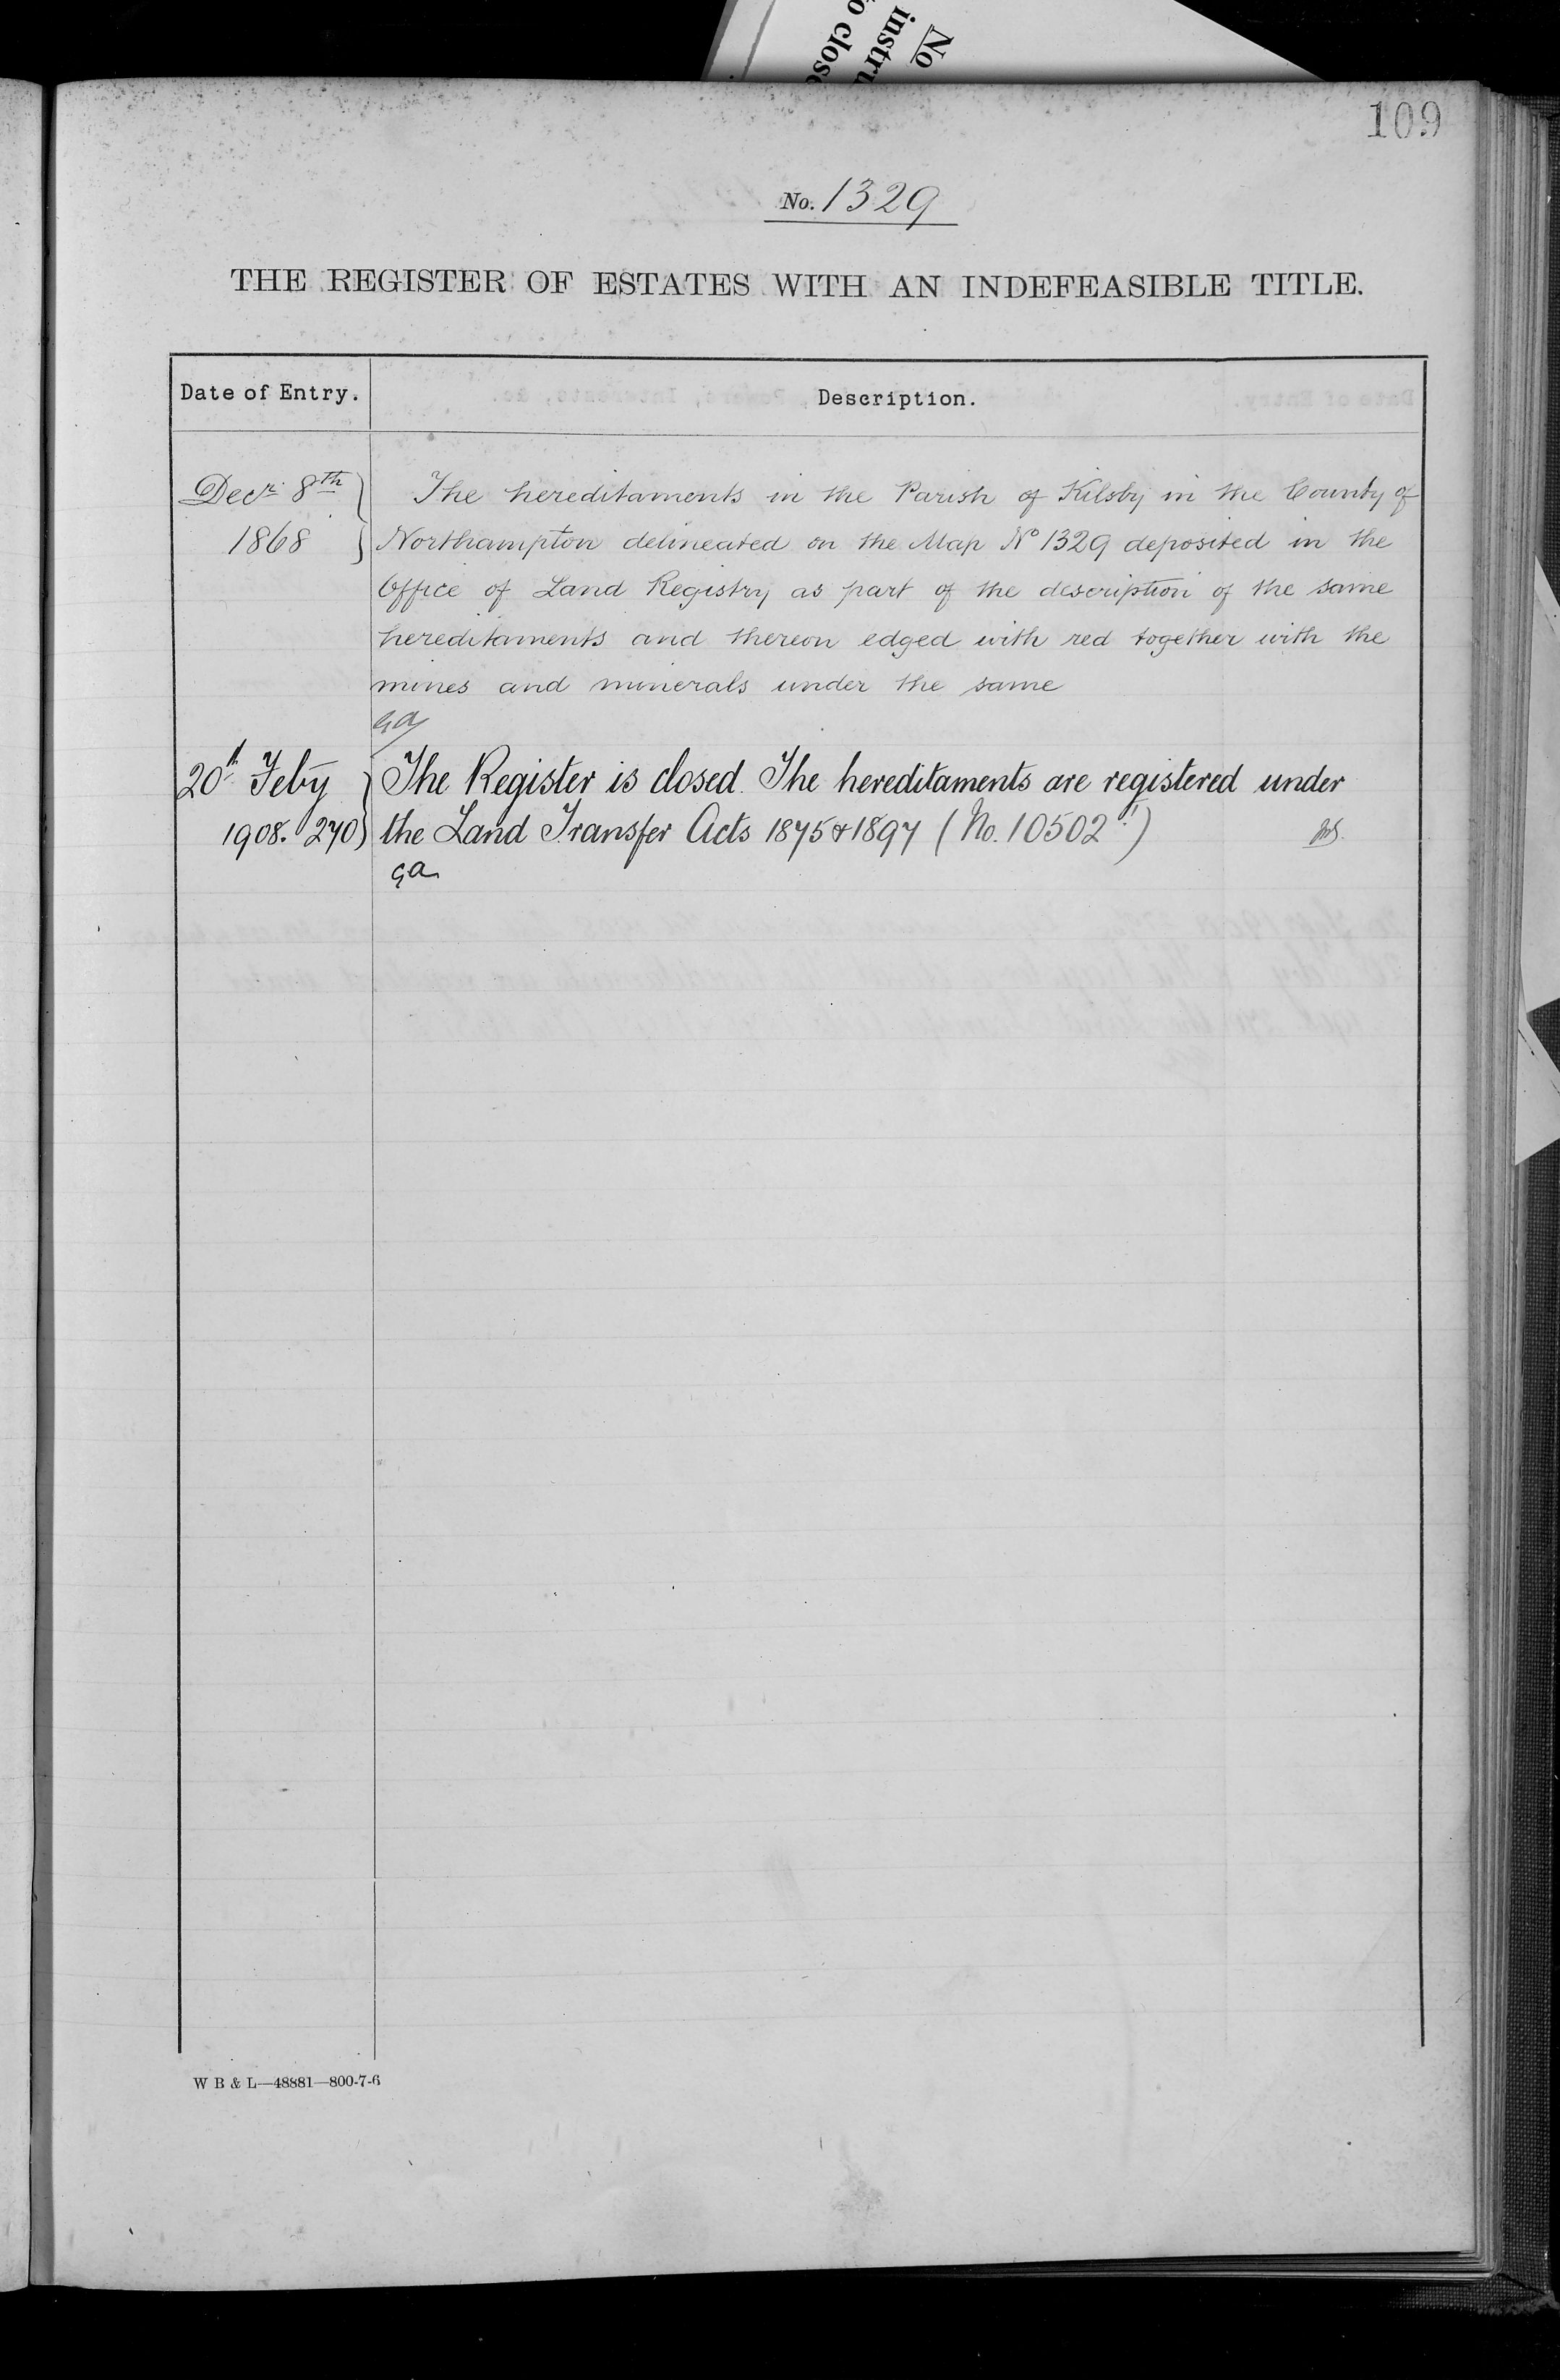 No
instru
o close
109
No. 1329
THE REGISTER OF ESTATES WITH AN INDEFEASIBLE TITLE.
Date of Entry.
Description.
Decr 8th
1868
The hereditaments in the Parish of Kilsby in the County of
Northampton delineated on the Map No 1329 deposited in the
Office of Land Registry as part of the description of the same
hereditaments and thereon edged with red together with the
mines and minerals under the same
GA
20th Feby
1908. 270
The Register is closed. The hereditaments are registered under
the Land Transfer Acts 1875 & 1897 (No. 10502)
GA
W B & L—48881—800-7-6